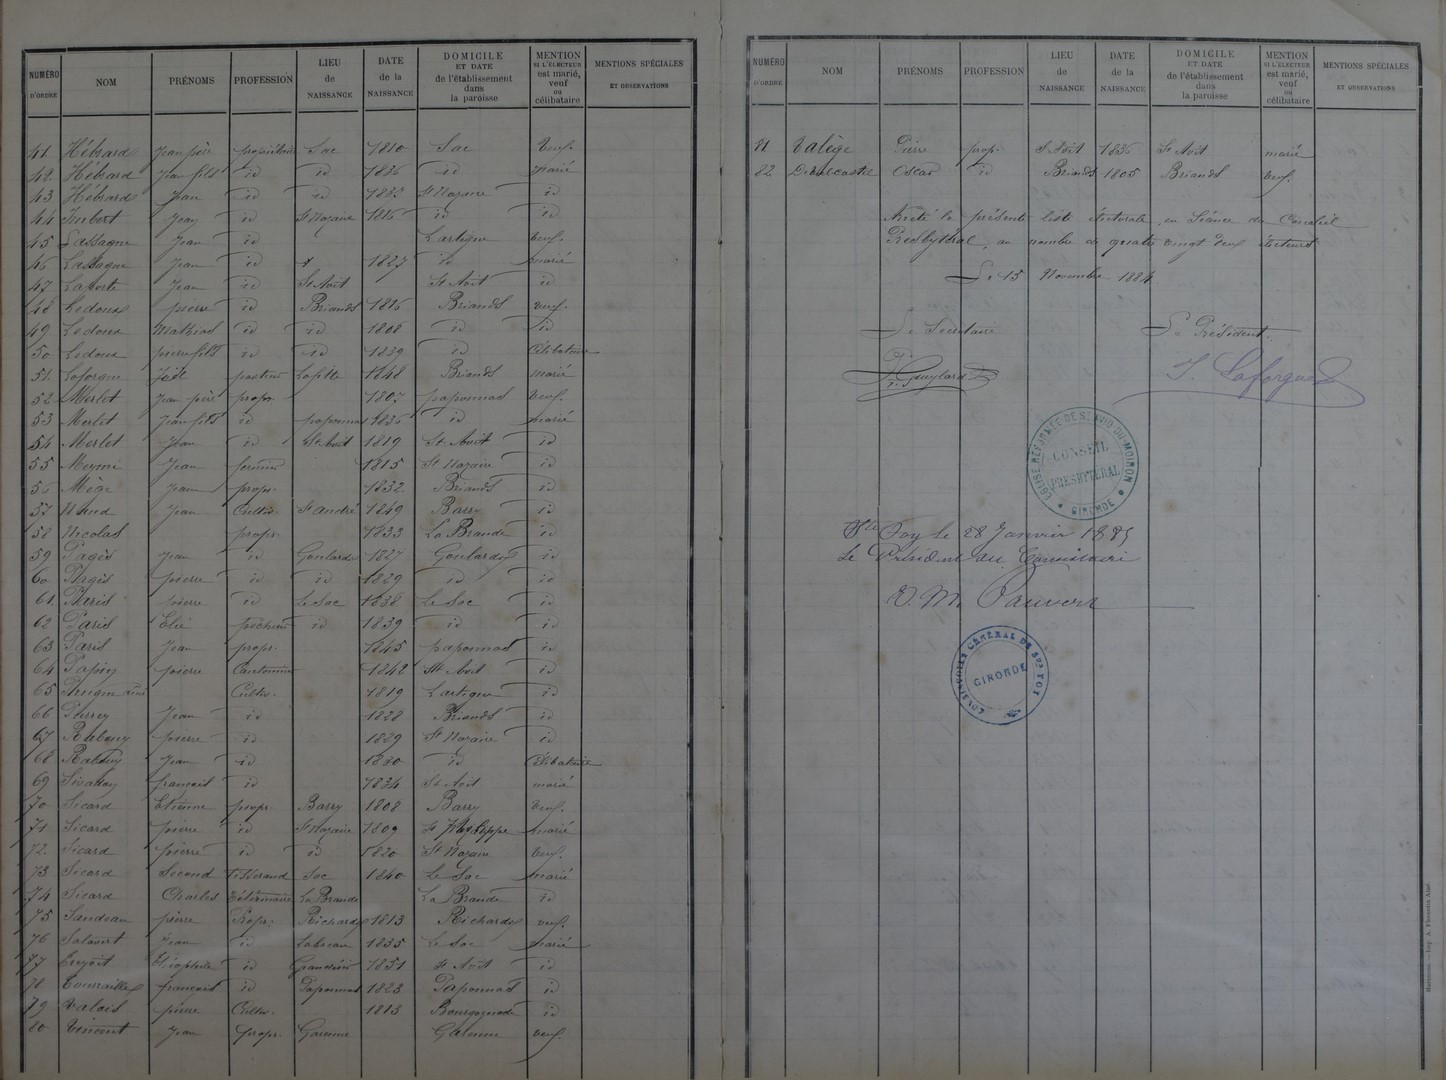 NUMÉRO D'ORDRE NOM PRÉNOMS PROFESSION LIEU de NAISSANCE DATE de la NAISSANCE DOMICILE ET DATE de l'établissement dans la paroisse MENTION SI L'ÉLECTEUR est marié, veuf ou célibataire MENTIONS SPÉCIALES ET OBSERVATIONS
41 Hébrard Jean père propriétaire Sac 1810 Sac veuf.
42 Hébrard Jean fils id id 1836 id marié
43 Hébrard Jean id id St Nazaire id
44 Imbert Jean id St Nazaire 1816 id id
45 Lassagne Jean id Lartigue veuf.
46 Lassagne Jean id 1827 id marié
47 Laporte Jean id St Avit St Avit id
48 Ledoux pierre id Briands 1816 Briands veuf.
49 Ledoux Mathias id id 1808 id id
50 Ledoux pierre fils id id 1839 id célibataire
51 Laforgue pasteur Lafitte 1848 Briands marié
52 Merlet Jean père propr. 1807 paponnat veuf.
53 Merlet Jean fils id paponnat 1836 id marié
54 Merlet Jean id St Avit 1819 St Avit id
55 Jean 1815 St Nazaire id
56 Mège Jean propr. 1832 Briands id
57 Jean Cultiv. St André 1849 Barry id
58 Nicolas propr. 1833 La Brande id
59 Pagès Jean id Goulards 1827 Goulards id
60 Pagès pierre id id 1829 id id
61 Paris pierre id Le Sac 1838 Le Sac id
62 Paris Elie pêcheur id 1839 id id
63 Paris Jean propr. 1845 paponnat id
64 Papin pierre Cantonnier 1842 St Avit id
65 Cultiv. 1819 Lartigue id
66 Jean id 1828 Briands id
67 pierre id 1829 St Nazaire id
68 Jean id 1830 id célibataire
69 françois id 1834 St Avit marié
70 Sicard Etienne propr. Barry 1808 Barry veuf.
71 Sicard pierre id St Nazaire 1809 St Philippe marié
72 Sicard pierre id id 1820 St Nazaire veuf.
73 Sicard Second tisserand Sac 1840 Le Sac marié
74 Sicard Charles Vétérinaire La Brande La Brande id
75 pierre Propr. Richards 1813 Richards veuf.
76 Jean id 1835 Le Sac marié
77 Théophile id 1851 St Avit id
78 françois id Paponnat 1823 Paponnat id
79 Valois pierre Cultiv. 1813 id
80 Vincent Jean propr. Garenne Garenne veuf.
NUMÉRO D'ORDRE NOM PRÉNOMS PROFESSION LIEU de NAISSANCE DATE de la NAISSANCE DOMICILE ET DATE de l'établissement dans la paroisse MENTION SI L'ÉLECTEUR est marié, veuf ou célibataire MENTIONS SPÉCIALES ET OBSERVATIONS
81 Valège Pierre prop. St Avit 1836 St Avit marié
82 Oscar id Briands 1805 Briands veuf.
Arrêté la présente liste électorale, en Séance du Conseil
Presbytéral, au nombre de quatre vingt deux électeurs
Le 15 Novembre 1884
Le Secrétaire Le Président
Guylard J. Laforgue
EGLISE RÉFORMÉE DE ST AVID-DU-MOIRON
CONSEIL
PRESBYTÉRAL
GIRONDE
Ste Foy le 28 Janvier 1885
Le Président du Consistoire
CONSISTOIRE GÉNÉRAL DE STE FOY
GIRONDE